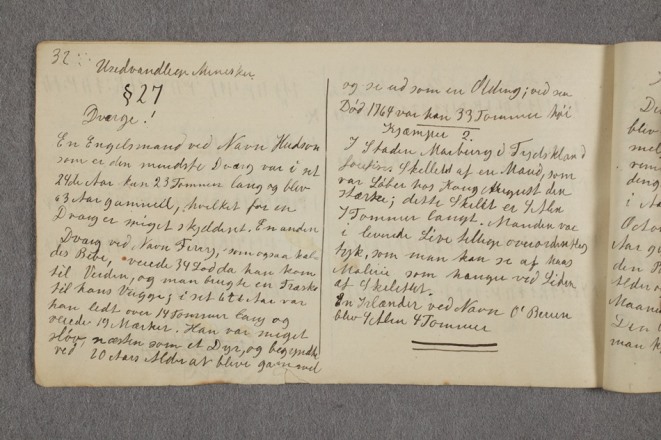 32
Usedvandlige Menesker
§ 27
Dværge!
En Engelsmand ved Navn Hudson
som er den mindste Dværg var i sit
24de Aar kun 23 Tommer lang og blev
63 Aar gammel, hvilket for en
Dværg er meget skjeldent. En anden
Dværg ved Navn Ferry, som ogsaa kal-
des Bebe, veiede 34 Lod da han kom
til Verden, og man brugte en Træsko
til hans Vugge; i set 6te Aar var
han lidt over 14 Tommer lang og
veiede 19 Mærker. Han var meget
sløv, næsten som et Dyr, og begyndte
ved 20 Aars Alder at blive gammel
og se ud som en Olding; ved sin
Død 1764 var han 33 Tommer høi
Kjæmper 2.
I Staden Marburg i Tydskland
forevises Skellett af en Mand, som
var Løber hos Kong August den
stærke; dette Skelet er 4 Alen
7 Tommer langt. Manden var
i levende Live tillige overordentlig
tyk, som man kan se af hans
Malerie som hænger ved Siden
af Skelettet.
En Irlænder ved Navn O' Brien
blev 4 Alen 4 Tommer
De
blev
mel
rem
deng
i A
Octo
Aar g
den
Alder
Maane
Den
man k